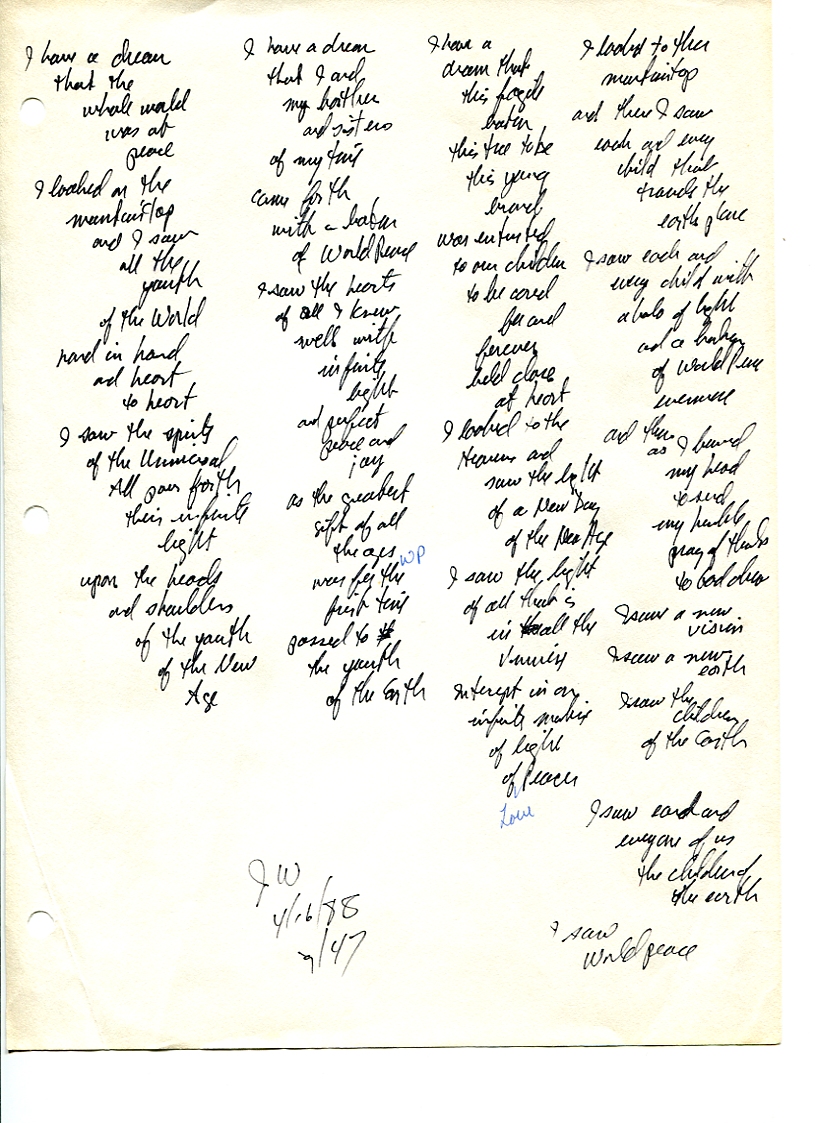 I have a dream
that the
whole world
was at
peace
I looked on the
mountaintop
and I saw
all the
youth
of the World
hand in hand
and heart
to heart
I saw the spirits
of the Universal
All pour forth
their infinite
light
upon the heads
and shoulders
of the youth
of the New
Age
I have a dream
that I and
my brother
and sisters
of my
came forth
with a baton
of World Peace
I saw the hearts
of all I knew
swell with
infinite
light
and perfect
peace and
joy
as the greatest
gift of all
the ages WP
was for the
first time
passed to
the youth
of the Earth
I have a
dream that
this fragile
baton
this tree to be
this young
was entrusted
to our children
to be cared
for and
forever
held close
at heart
I looked to the
Heavens and
saw the light
of a New Day
of the New Age
I saw the light
of all that is
in all the
Universe
in an
infinite matrix
of light
of Peace
Love
I looked to the
mountaintop
and there I saw
each and every
child that
travels the
earth plane
I saw each and
every child with
a halo of light
and a baton
of World Peace
evermore
and then
as I bowed
my head
to send
my humble
pray of thanks
to God
I saw a new
vision
I saw a new
earth
I saw the
children
of the Earth
I saw each and
everyone of us
the children of
the earth
I saw
World peace
JW
4/16/88